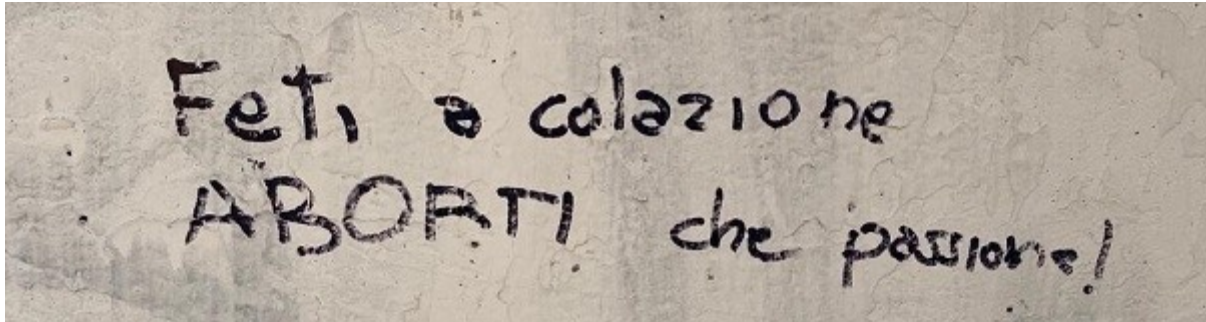 Feti a colazione
ABORTI che passione!